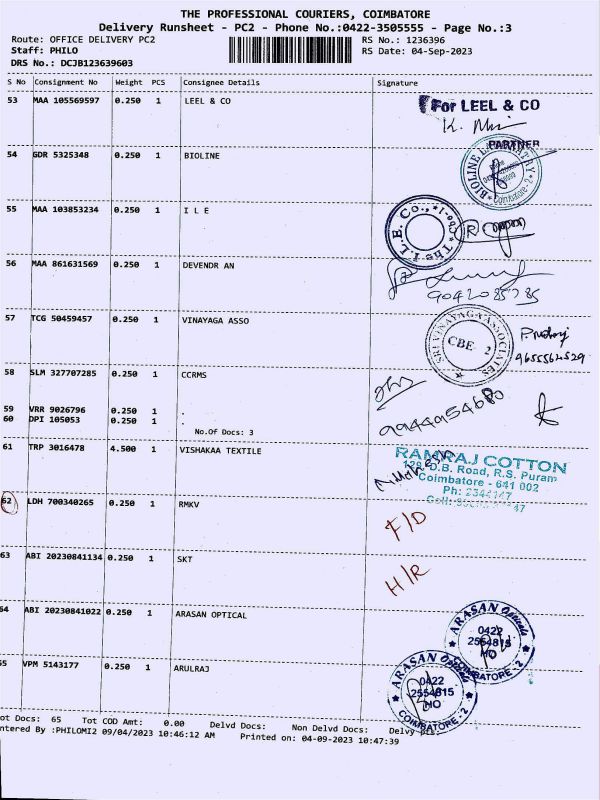 THE PROFESSIONAL COURIERS, COIMBATORE
Delivery Runsheet - PC2 - Phone No.:0422-3505555 - Page No.:3
Route: OFFICE DELIVERY PC2
RS No.: 1236396
Staff: PHILO
RS Date: 04-Sep-2023
DRS No.: DCJB123639603
S No Consignment No Weight PCS Consignee Details Signature
53 MAA 105569597 0.250 1 LEEL & CO
For LEEL & CO
PARTNER
54 GDR 5325348 0.250 1 BIOLINE
BIOLINE
Coimbatore - 2
55 MAA 103853234 0.250 1 I L E
The I.L.E. Co.,
56 MAA 861631569 0.250 1 DEVENDR AN
9042085785
57 TCG 50459457 0.250 1 VINAYAGA ASSO
SRI VINAYAGA ASSOCIATES
CBE 2
9655564529
58 SLM 327707285 0.250 1 CCRMS
9944954680
59 VRR 9026796 0.250 1 .
60 DPI 105053 0.250 1
No.Of Docs: 3
61 TRP 3016478 4.500 1 VISHAKAA TEXTILE
RAMRAJ COTTON
129, D.B. Road, R.S. Puram
Coimbatore - 641 002
Ph: 2344147
62 LDH 700340265 0.250 1 RMKV
F/D
63 ABI 20230841134 0.250 1 SKT
H/R
64 ABI 20230841022 0.250 1 ARASAN OPTICAL
ARASAN Opticals
0422
2554815
HO
COIMBATORE - 2
55 VPM 5143177 0.250 1 ARULRAJ
ARASAN Opticals
0422
2554815
HO
COIMBATORE - 2
ot Docs: 65 Tot COD Amt: 0.00 Delvd Docs: Non Delvd Docs: Delvy
ntered By :PHILOMI2 09/04/2023 10:46:12 AM Printed on: 04-09-2023 10:47:39